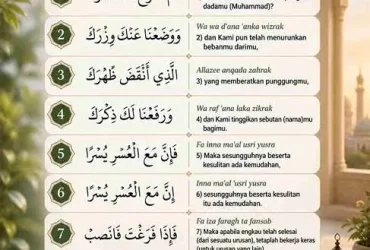 dadamu (Muhammad)?
2
وَوَضَعْنَا عَنْكَ وِزْرَكَ
Wa wa d'ana 'anka wizrak
2) dan Kami pun telah menurunkan
bebanmu darimu,
3
الَّذِي أَنْقَضَ ظَهْرَكَ
Allazee anqada zahrak
3) yang memberatkan punggungmu,
4
وَرَفَعْنَا لَكَ ذِكْرَكَ
Wa raf 'ana laka zikrak
4) dan Kami tinggikan sebutan (nama)mu
bagimu.
5
فَإِنَّ مَعَ الْعُسْرِ يُسْرًا
Fa inna ma'al usri yusra
5) Maka sesungguhnya beserta
kesulitan ada kemudahan,
6
إِنَّ مَعَ الْعُسْرِ يُسْرًا
Inna ma'al 'usri yusra
6) sesungguhnya beserta kesulitan
itu ada kemudahan.
7
فَإِذَا فَرَغْتَ فَانصَبْ
Fa iza faragh ta fansab
7) Maka apabila engkau telah selesai
(dari sesuatu urusan), tetaplah bekerja keras
(untuk urusan yang lain)